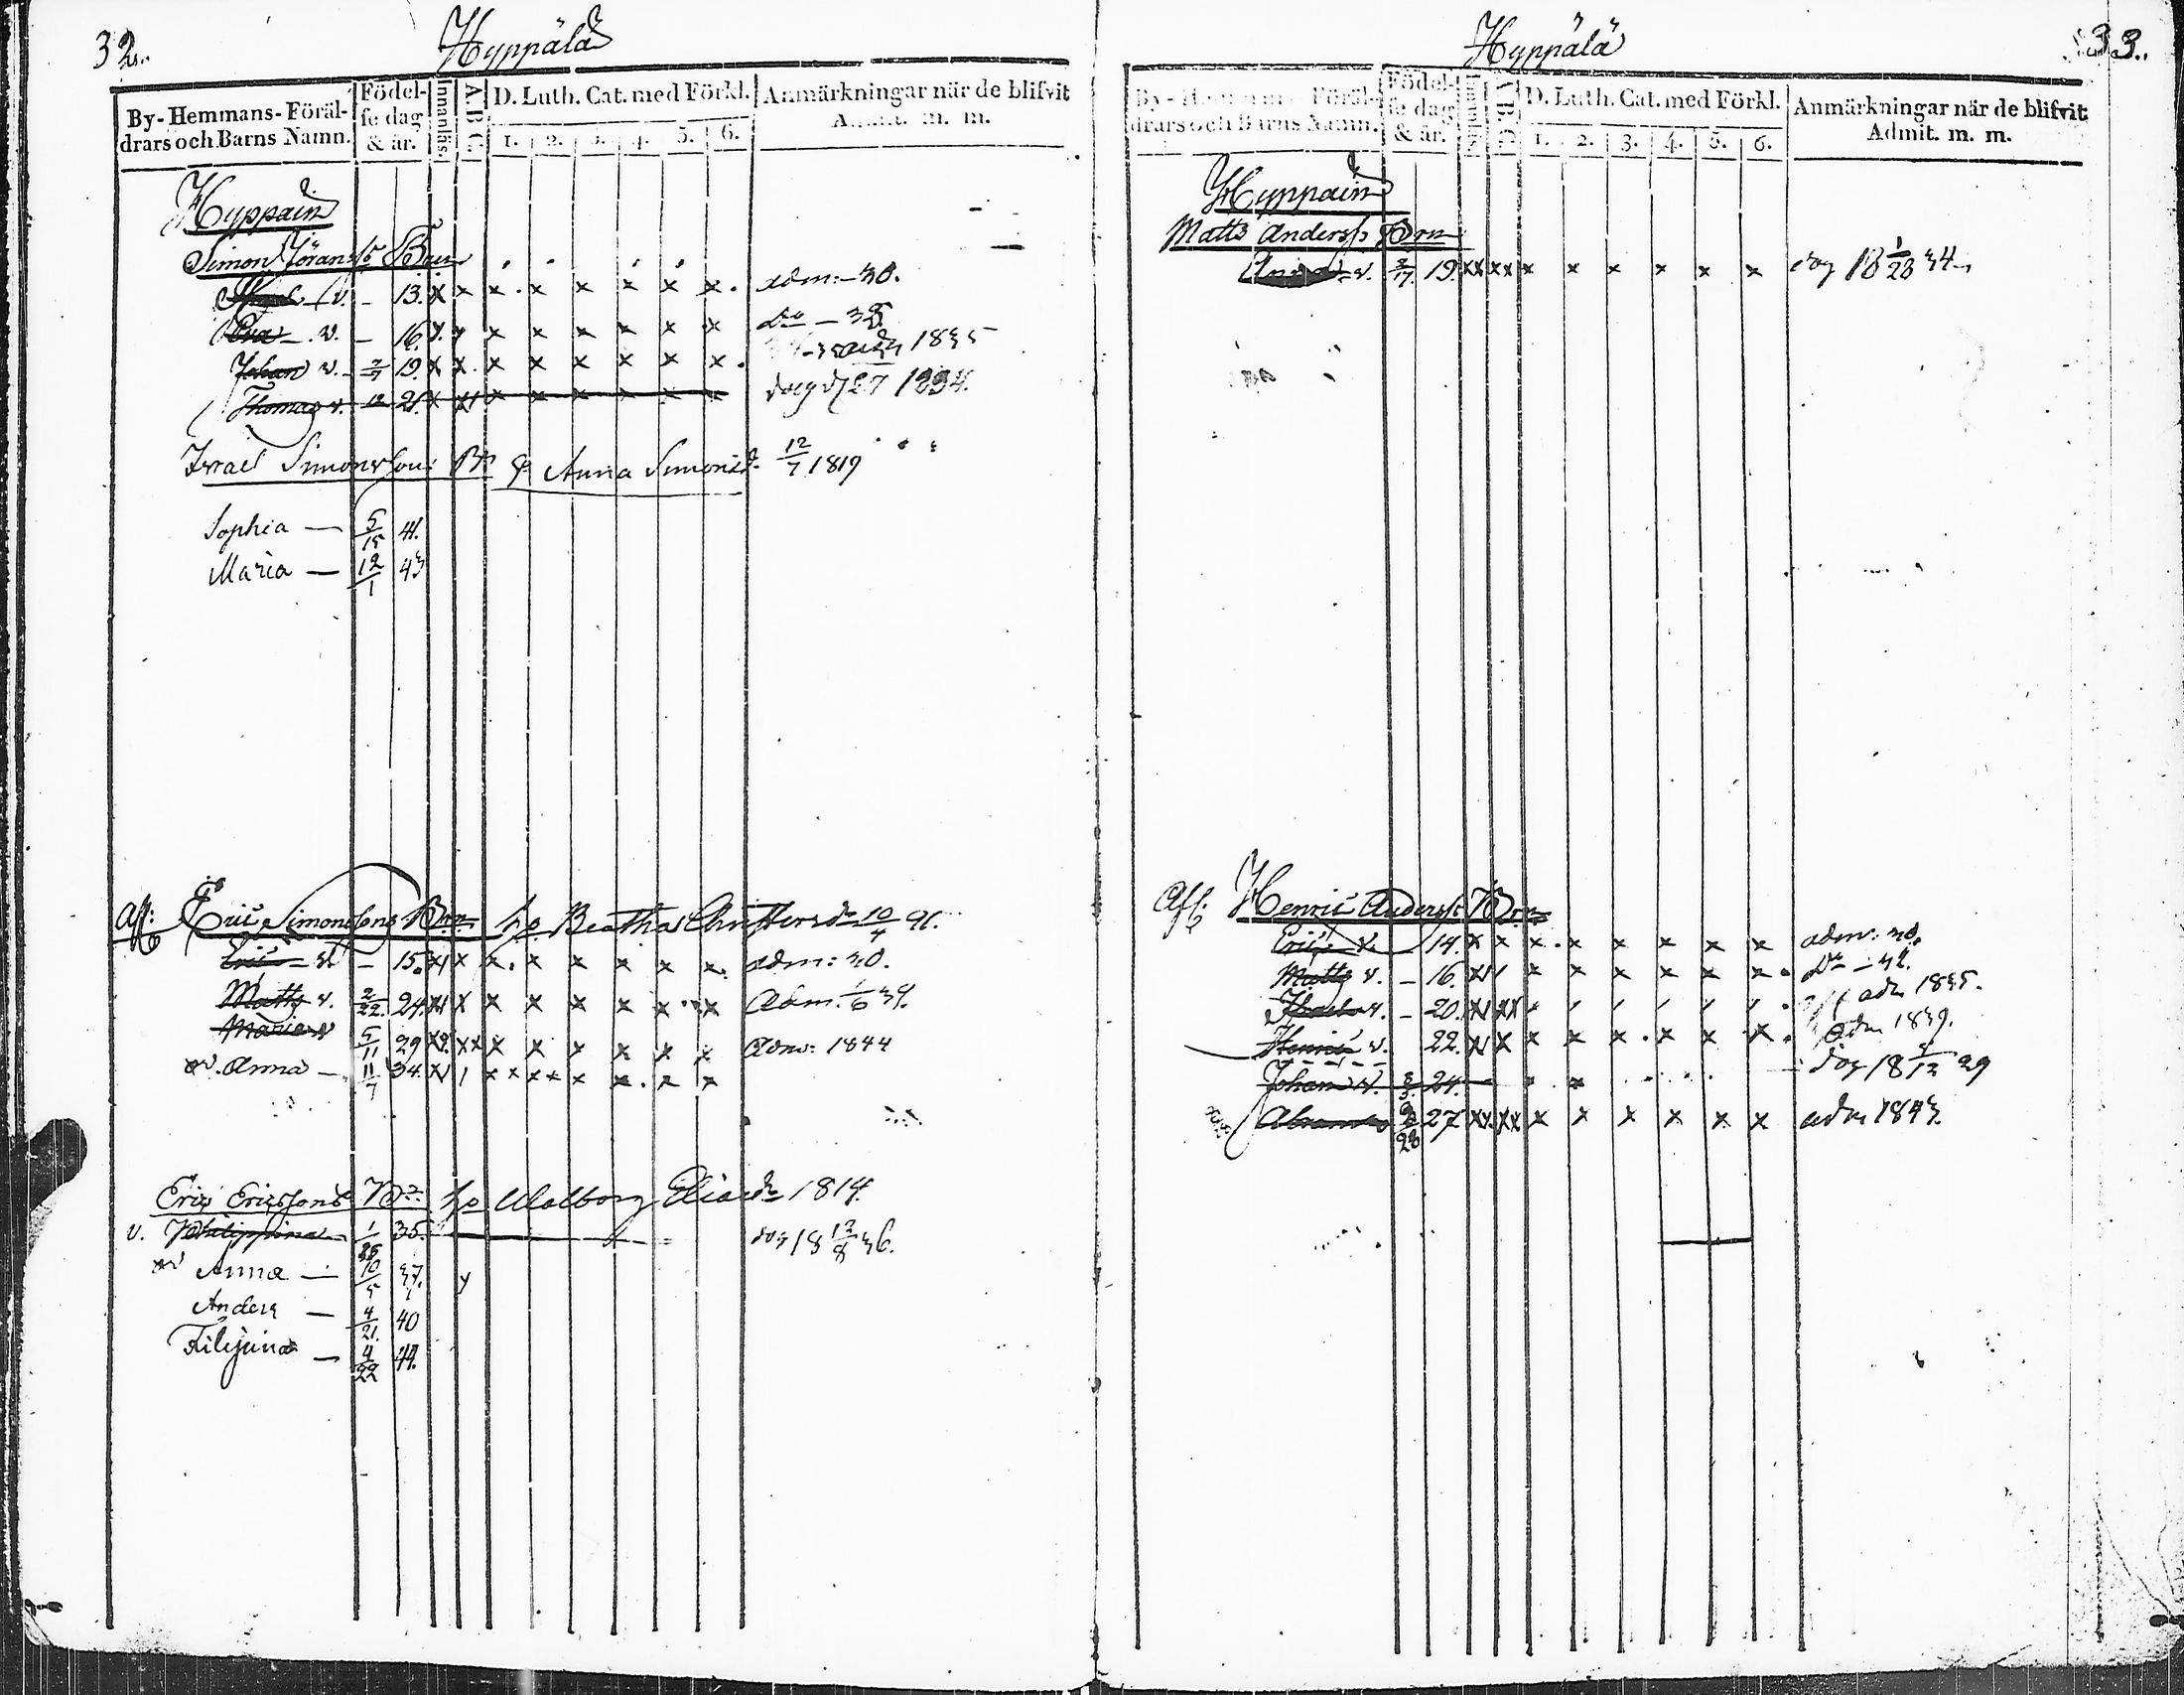 32.
Hyppälä
By-Hemmans-Föräl-
drars och Barns Namn.
Födel-
se dag
& år.
Innanläs.
A.B.C.
D. Luth. Cat. med Förkl.
1. 2. 3. 4. 5. 6.
Anmärkningar när de blifvit
Admit. m. m.
Hyppäin
Simon Jöranss Barn
v. – 13. x x x x x x x x. adm: – 30.
Eva – v. – 16. x x x x x x x x Do – 35
Johan v. 19. x x x x x x x x. 1835
Thomas v. 12 21. x x x x x x x x 27 1834.
Israel Simonssons Bn & Anna Simonsd. 12/7 1819
Sophia — 5/15 41.
Maria — 12/1 43
Aff: Eric Simonssons Brn ho Beatha Christersdr 10/4 91.
Eric – v. – 15. x x x x x x x x adm: 30.
Matts v. 2/22. 24. x x x x x x x x Adm. 1/6 39.
Maria v 5/11 29 x x x x x x x x Adm: 1844
v. Anna – 11/7 34. x x x x x x x
Eric Ericssons Brn ho Walborg Eliaedr 1814.
v. Philippina – 1/25 35. 18 12/8 36.
Anna — 10/5 37.
Anders — 4/21. 40
Filipina — 4/22 44.
33.
Hyppälä
By-Hemmans-Föräl-
drars och Barns Namn.
Födel-
se dag
& år.
Innanläs.
A.B.C.
D. Luth. Cat. med Förkl.
1. 2. 3. 4. 5. 6.
Anmärkningar när de blifvit
Admit. m. m.
Hyppäin
Matts Anderss Brn
Anna v. 2/17. 19. xx xx x x x x x x 18 1/28 34
Aff: Henric Anderss Brn
Eric v. 14. x x x. x x x x x adm: 30.
Matts v. – 16. x x x x x x x. Do – 32.
v. – 20. adm 1835.
Henric v. 22. x x x x x. x x x. adm 1839.
Johan v. 24. 18 12 29
Abram 9/28 27 xx xx x x x x x x adm 1843.